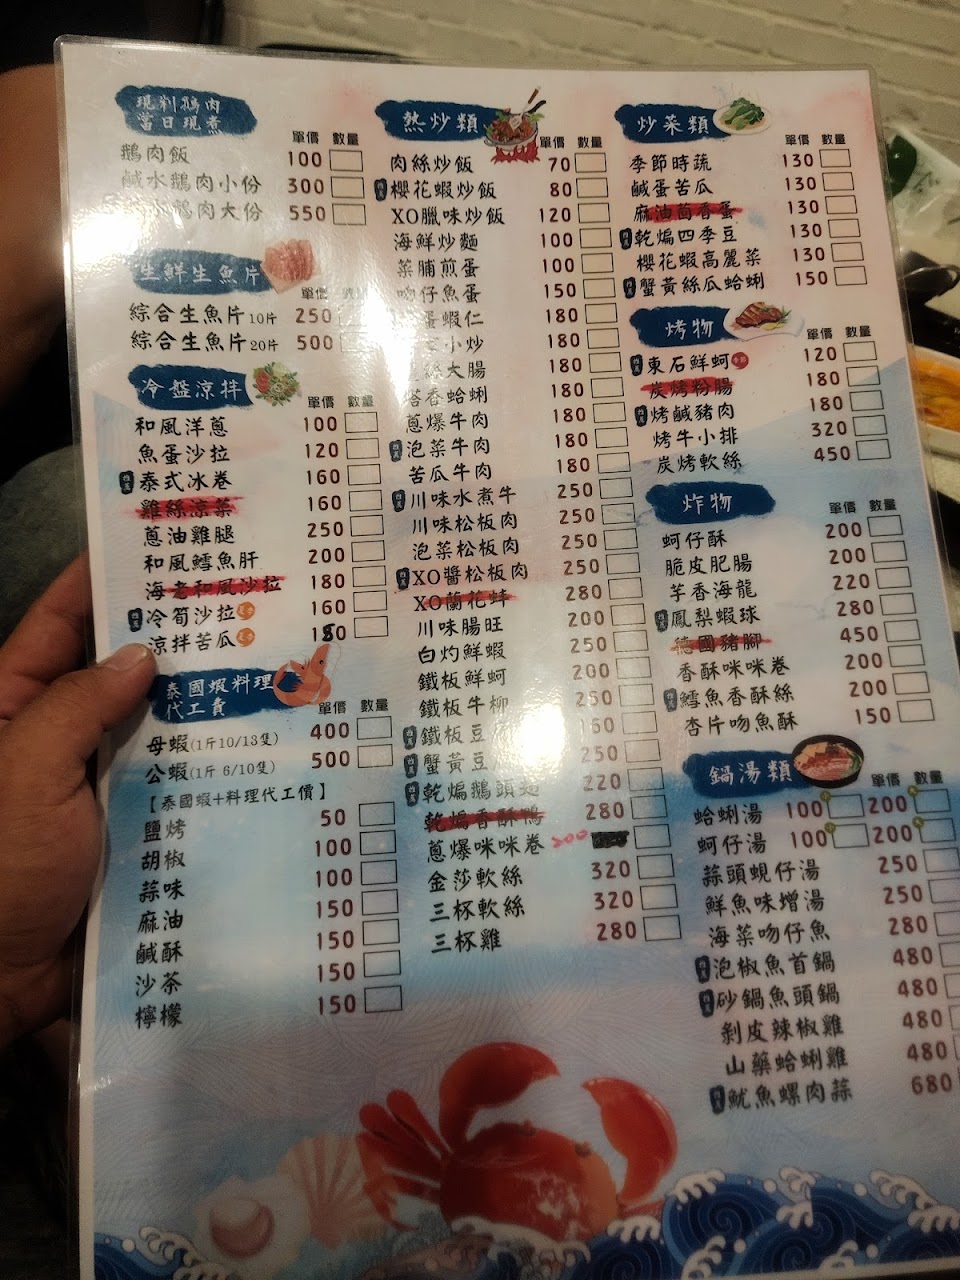 現剁鵝肉
當日現煮
單價 數量
鵝肉飯 100
鹹水鵝肉小份 300
鵝肉大份 550
生鮮生魚片
單價
綜合生魚片10片 250
綜合生魚片20片 500
冷盤涼拌
單價 數量
和風洋蔥 100
魚蛋沙拉 120
泰式冰卷 160
雞絲涼菜 160
蔥油雞腿 250
和風鱈魚肝 200
海老和風沙拉 180
冷筍沙拉 160
涼拌苦瓜 150
泰國蝦料理
代工費
單價 數量
母蝦(1斤10/13隻) 400
公蝦(1斤 6/10隻) 500
【泰國蝦+料理代工價】
鹽烤 50
胡椒 100
蒜味 100
麻油 150
鹹酥 150
沙茶 150
檸檬 150
熱炒類
單價 數量
肉絲炒飯 70
櫻花蝦炒飯 80
XO臘味炒飯 120
海鮮炒麵 100
菜脯煎蛋 100
吻仔魚蛋 150
蛋蝦仁 180
小炒 180
大腸 180
塔香蛤蜊 180
蔥爆牛肉 180
泡菜牛肉 180
苦瓜牛肉 180
川味水煮牛 250
川味松板肉 250
泡菜松板肉 250
XO醬松板肉 250
XO蘭花蚌 280
川味腸旺 200
白灼鮮蝦 250
鐵板鮮蚵 200
鐵板牛柳 250
鐵板豆 160
蟹黃豆 250
乾煸鵝頭 220
乾煸香酥鴨 280
蔥爆咪咪卷 200
金莎軟絲 320
三杯軟絲 320
三杯雞 280
炒菜類
單價 數量
季節時蔬 130
鹹蛋苦瓜 130
麻油茴香蛋 130
乾煸四季豆 130
櫻花蝦高麗菜 130
蟹黃絲瓜蛤蜊 150
烤物
單價 數量
東石鮮蚵 120
炭烤粉腸 180
烤鹹豬肉 180
烤牛小排 320
炭烤軟絲 450
炸物
單價 數量
蚵仔酥 200
脆皮肥腸 200
芋香海龍 220
鳳梨蝦球 280
德國豬腳 450
香酥咪咪卷 200
鱈魚香酥絲 200
杏片吻魚酥 150
鍋湯類
單價 數量
蛤蜊湯 100 200
蚵仔湯 100 200
蒜頭蜆仔湯 250
鮮魚味增湯 250
海菜吻仔魚 280
泡椒魚首鍋 480
砂鍋魚頭鍋 480
剝皮辣椒雞 480
山藥蛤蜊雞 480
魷魚螺肉蒜 680